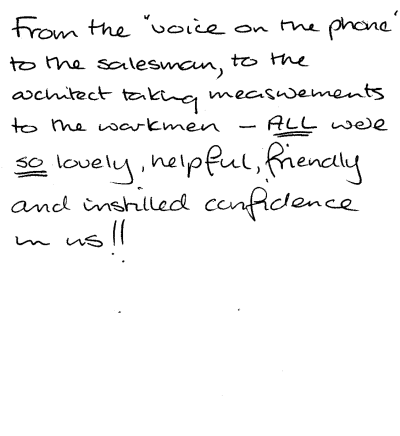 From the "voice on the phone"
to the salesman, to the
architect taking measurements
to the workmen – ALL were
so lovely, helpful, friendly
and instilled confidence
in us!!